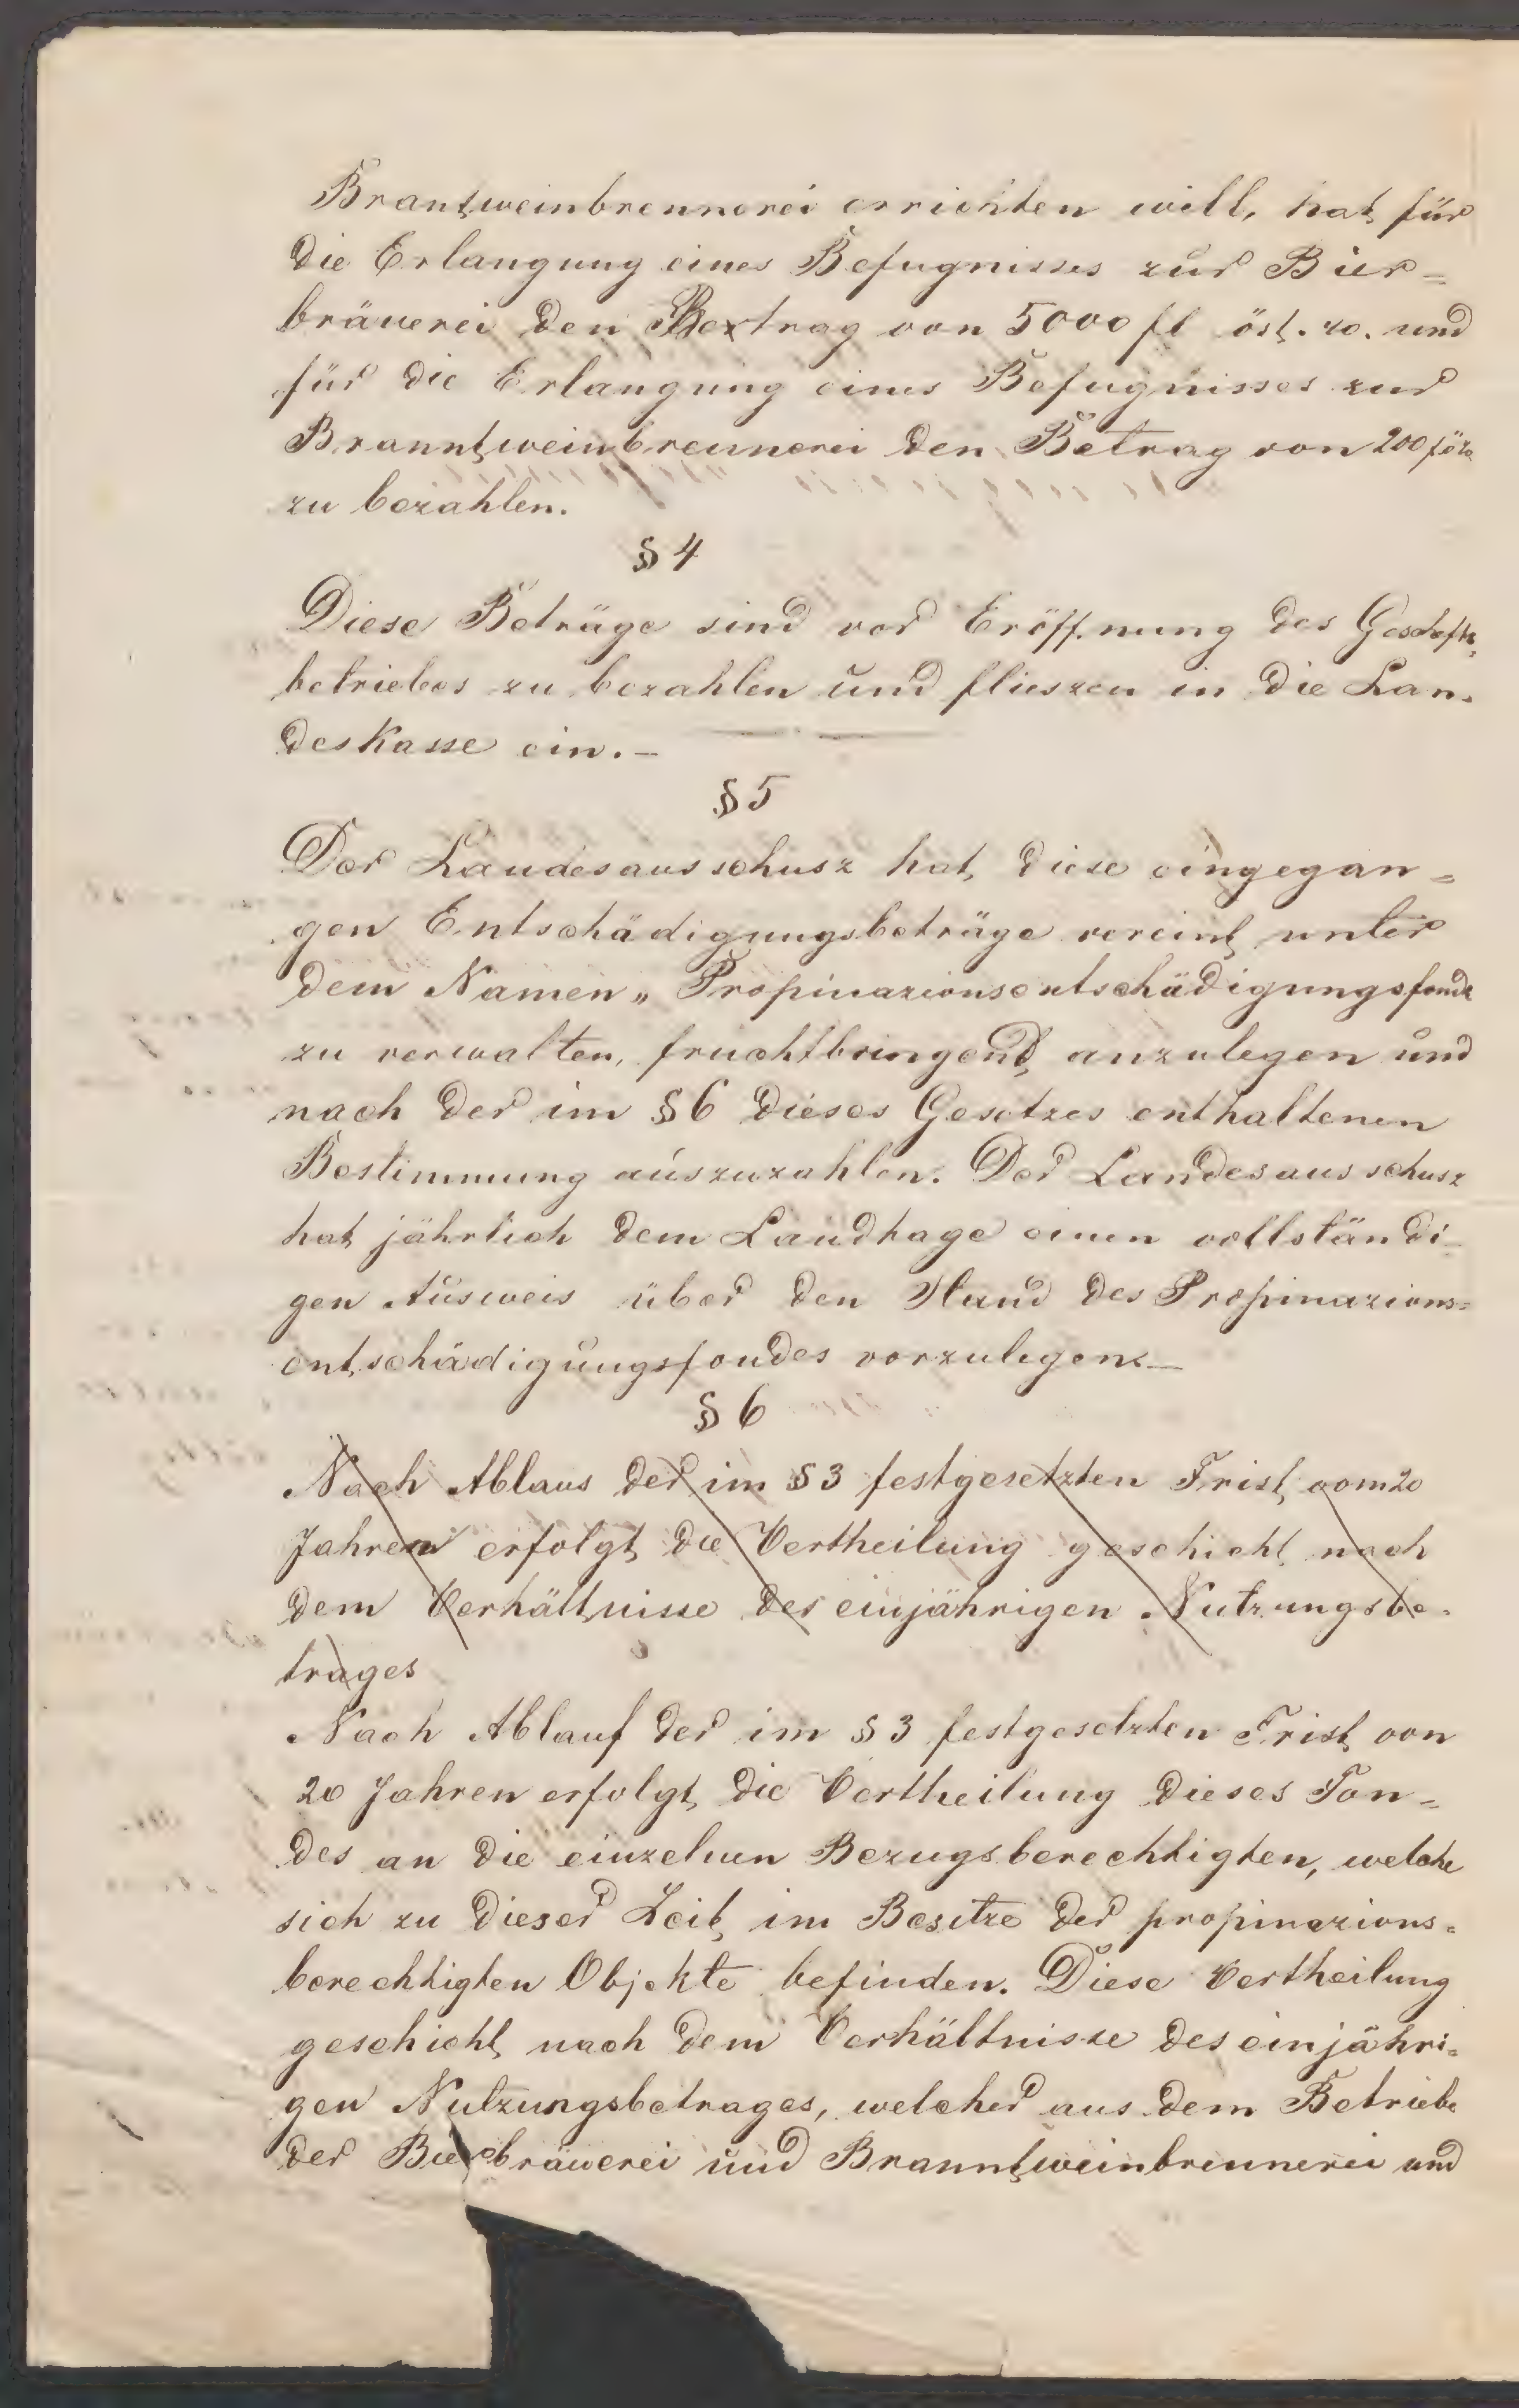 Brantweinbrennerei errichten will, hat für
die Erlangung eines Befugnisses zur Bier=
bräuerei den Bextrag von 5000 fl öst. w. und
für die Erlangung eines Befugnisses zur
Branntweinbrennerei den Betrag von 200 f ö w
zu bezahlen.
§ 4
Diese Beträge sind vor Eröffnung des Geschefts=
betriebes zu bezahlen und flieszen in die Lan=
deskasse ein.—
§ 5
Der Landesausschusz hat diese eingegan=
gen Entschädigungsbeträge vereint unter
dem Namen „Propinazionsentschädigungsfonds
zu verwalten, fruchtbringend anzulegen und
nach der im § 6 dieses Gesetzes enthaltenen
Bestimmung auszuzahlen. Der Landesausschusz
hat jährlich dem Landtage einen vollständi=
gen Ausweis über den Stand des Propinazions=
entschädigungsfondes vorzulegen.—
§ 6
Nach Ablaus der im § 3 festgesetzten Frist vom 20
Jahren erfolgt die Vertheilung geschieht nach
dem Verhältnisse des einjährigen Nutzungsbe=
trages
Nach Ablauf der im § 3 festgesetzten Frist von
20 Jahren erfolgt die Vertheilung dieses Fon=
des an die einzelnen Bezugsberechtigten, welche
sich zu dieser Zeit im Besitze der propinazions=
berechtigten Objekte befinden. Diese Vertheilung
geschieht nach dem Verhältnisse des einjähri=
gen Nutzungsbetrages, welcher aus dem Betriebe
der Bierbräuerei und Branntweinbrennerei und